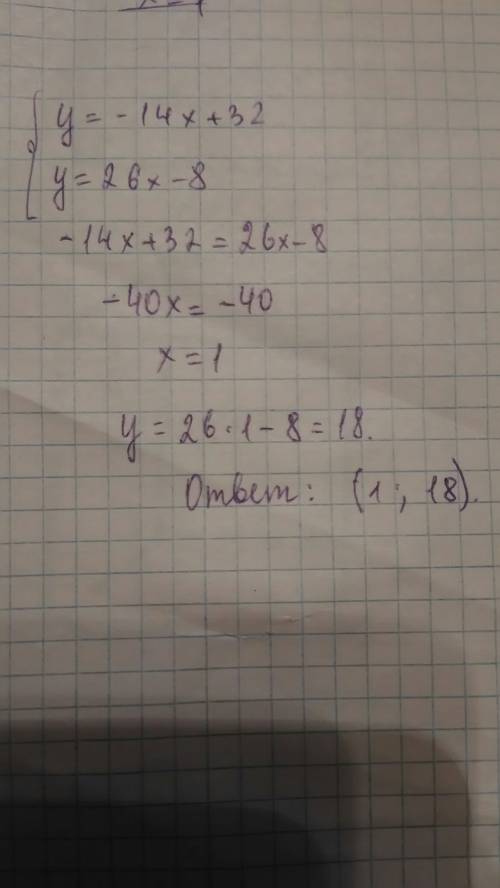 y = -14x+32
y = 26x-8
-14x+32 = 26x-8
-40x = -40
x = 1
y = 26·1-8 = 18.
Ответ: (1; 18).